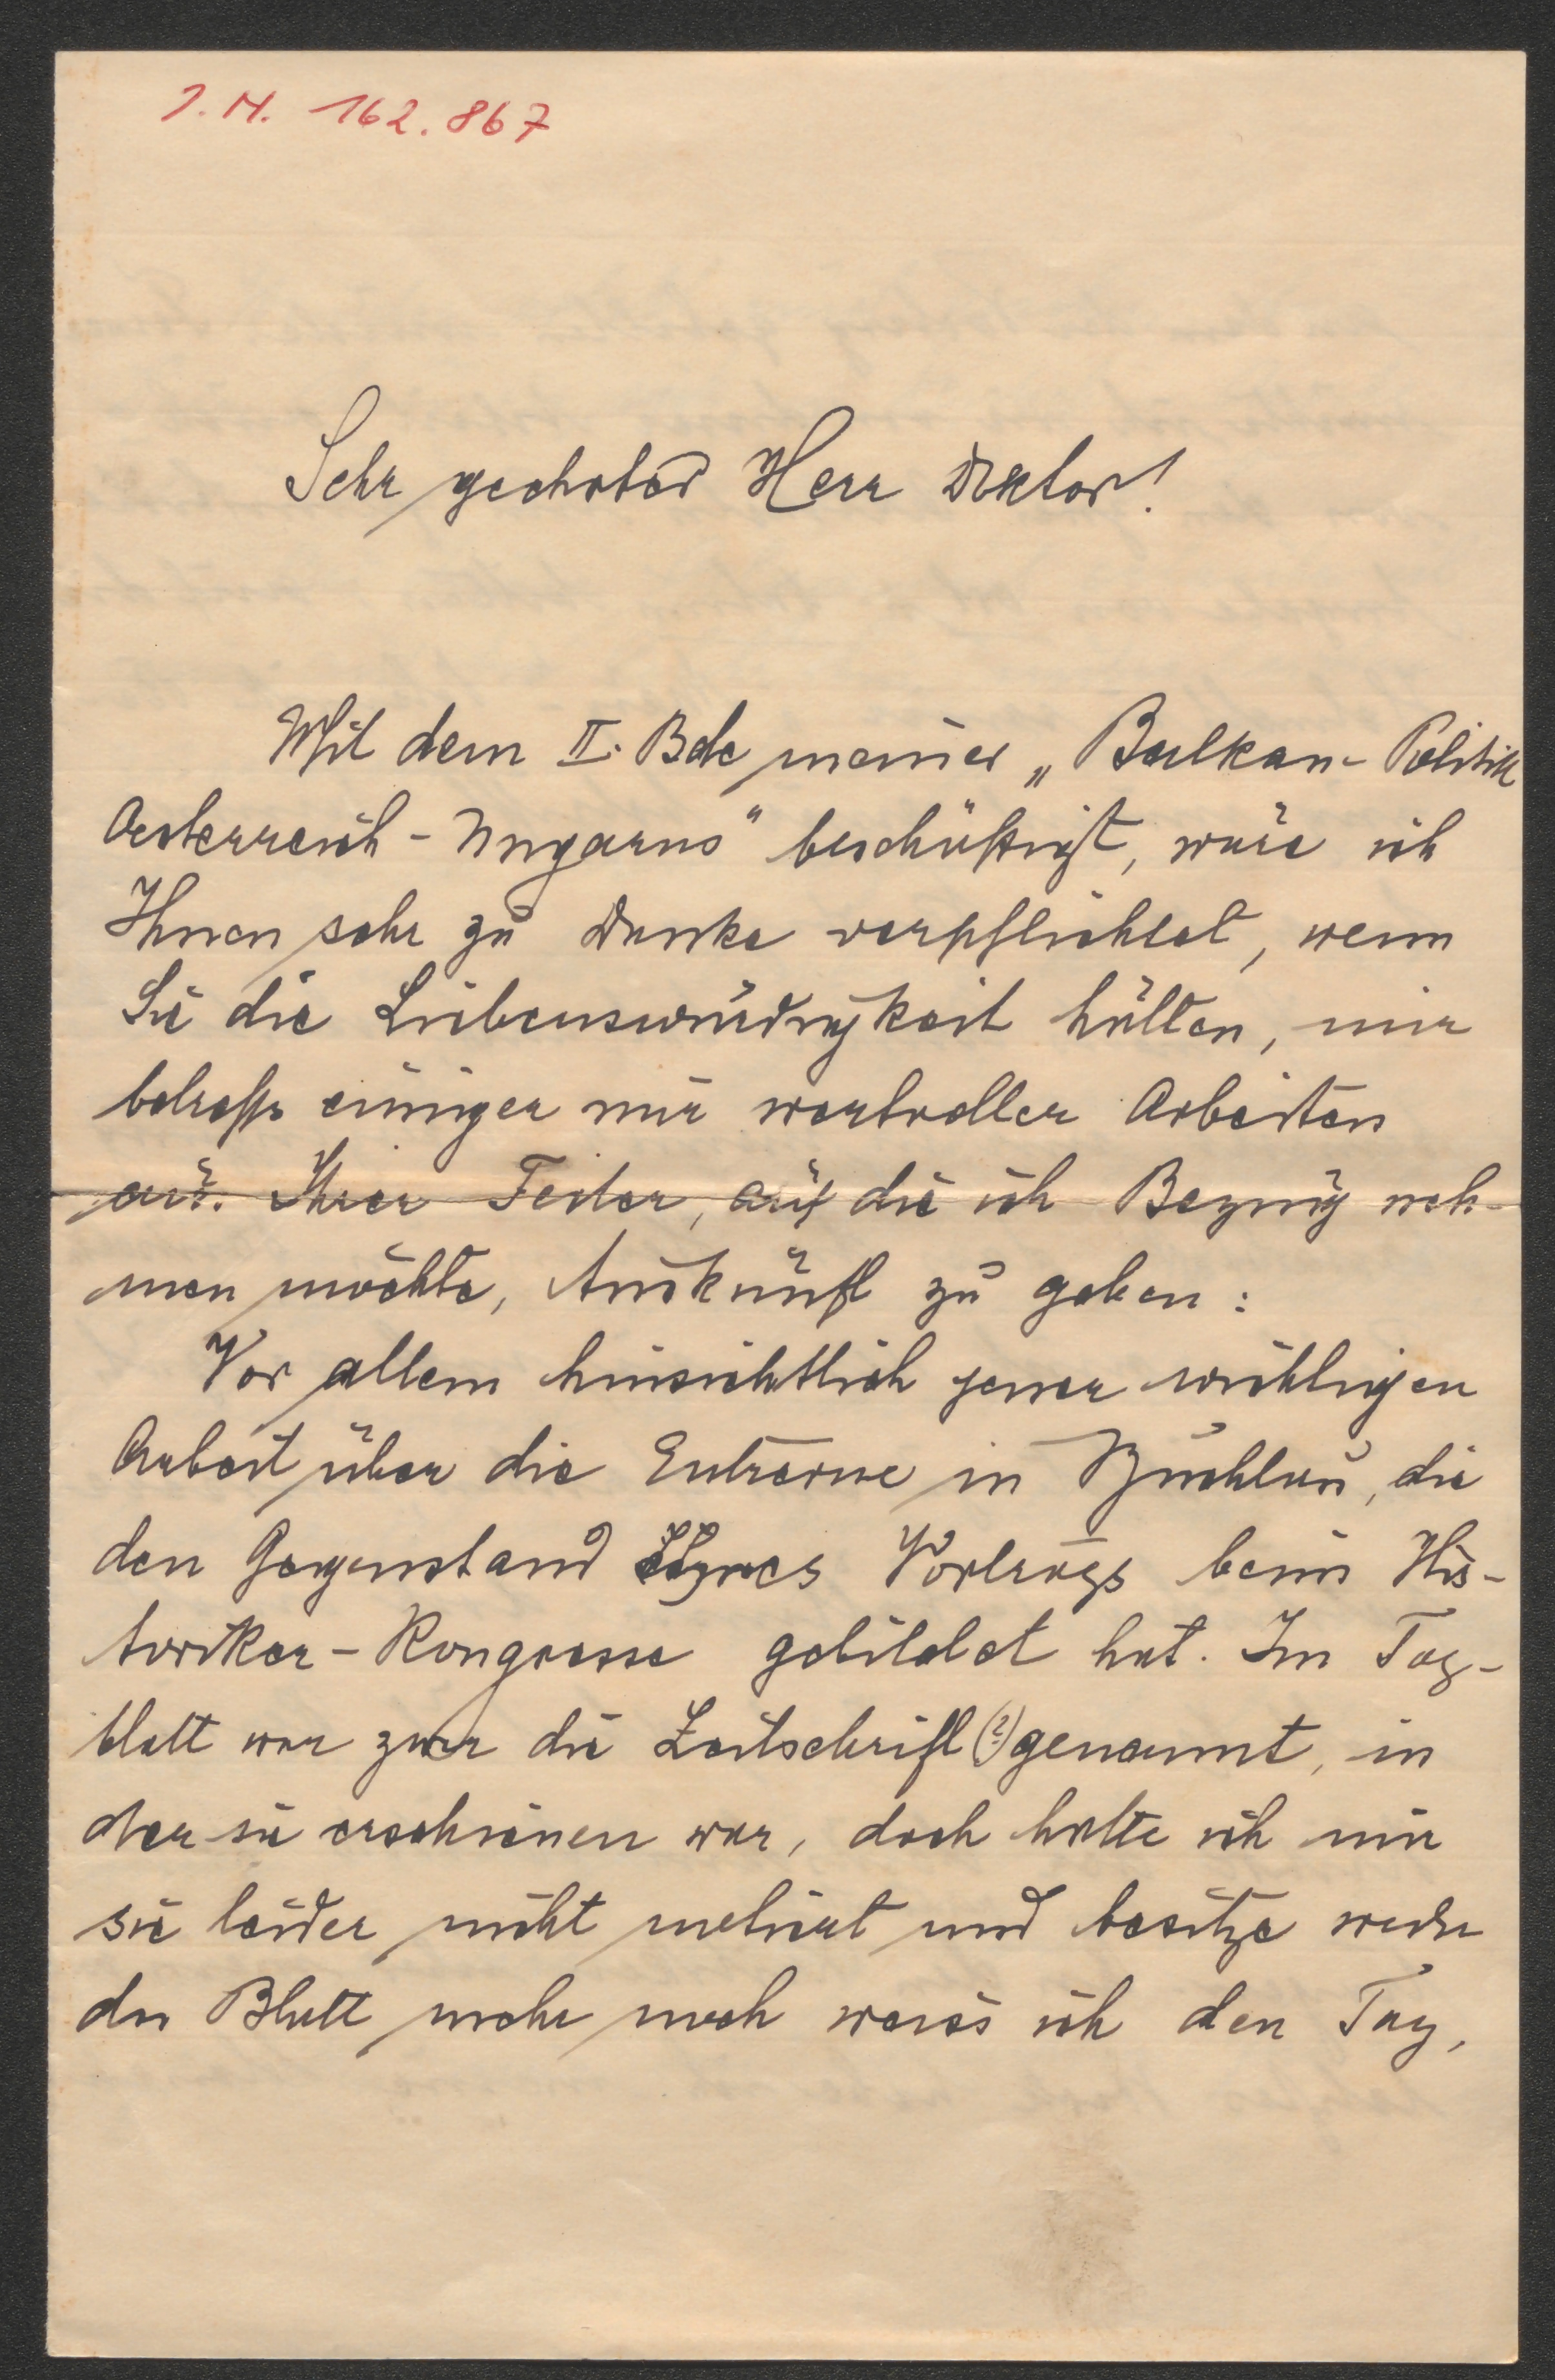 I. N. 162.867
Sehr geehrter Herr Doktor!
Mit dem II. Bde meiner „Balkan-Politik
Oesterreich-Ungarns" beschäftigt, wäre ich
Ihnen sehr zu Danke verpflichtet, wenn
Sie die Liebenswürdigkeit hätten, mir
betreffs einiger mir wertvoller Arbeiten
aus Ihrer Feder, auf die ich Bezug neh-
men möchte, Auskunft zu geben:
Vor allem hinsichtlich jener wichtigen
Arbeit über die Entrevue in Buchlau, die
den Gegenstand Vortrags beim His-
toriker-Kongresse gebildet hat. Im Tag-
blatt war zwar die Zeitschrift (?) genannt, in
der sie erschienen war, doch hatte ich mir
sie leider nicht notiert und besitze weder
das Blatt mehr noch weiss ich den Tag,